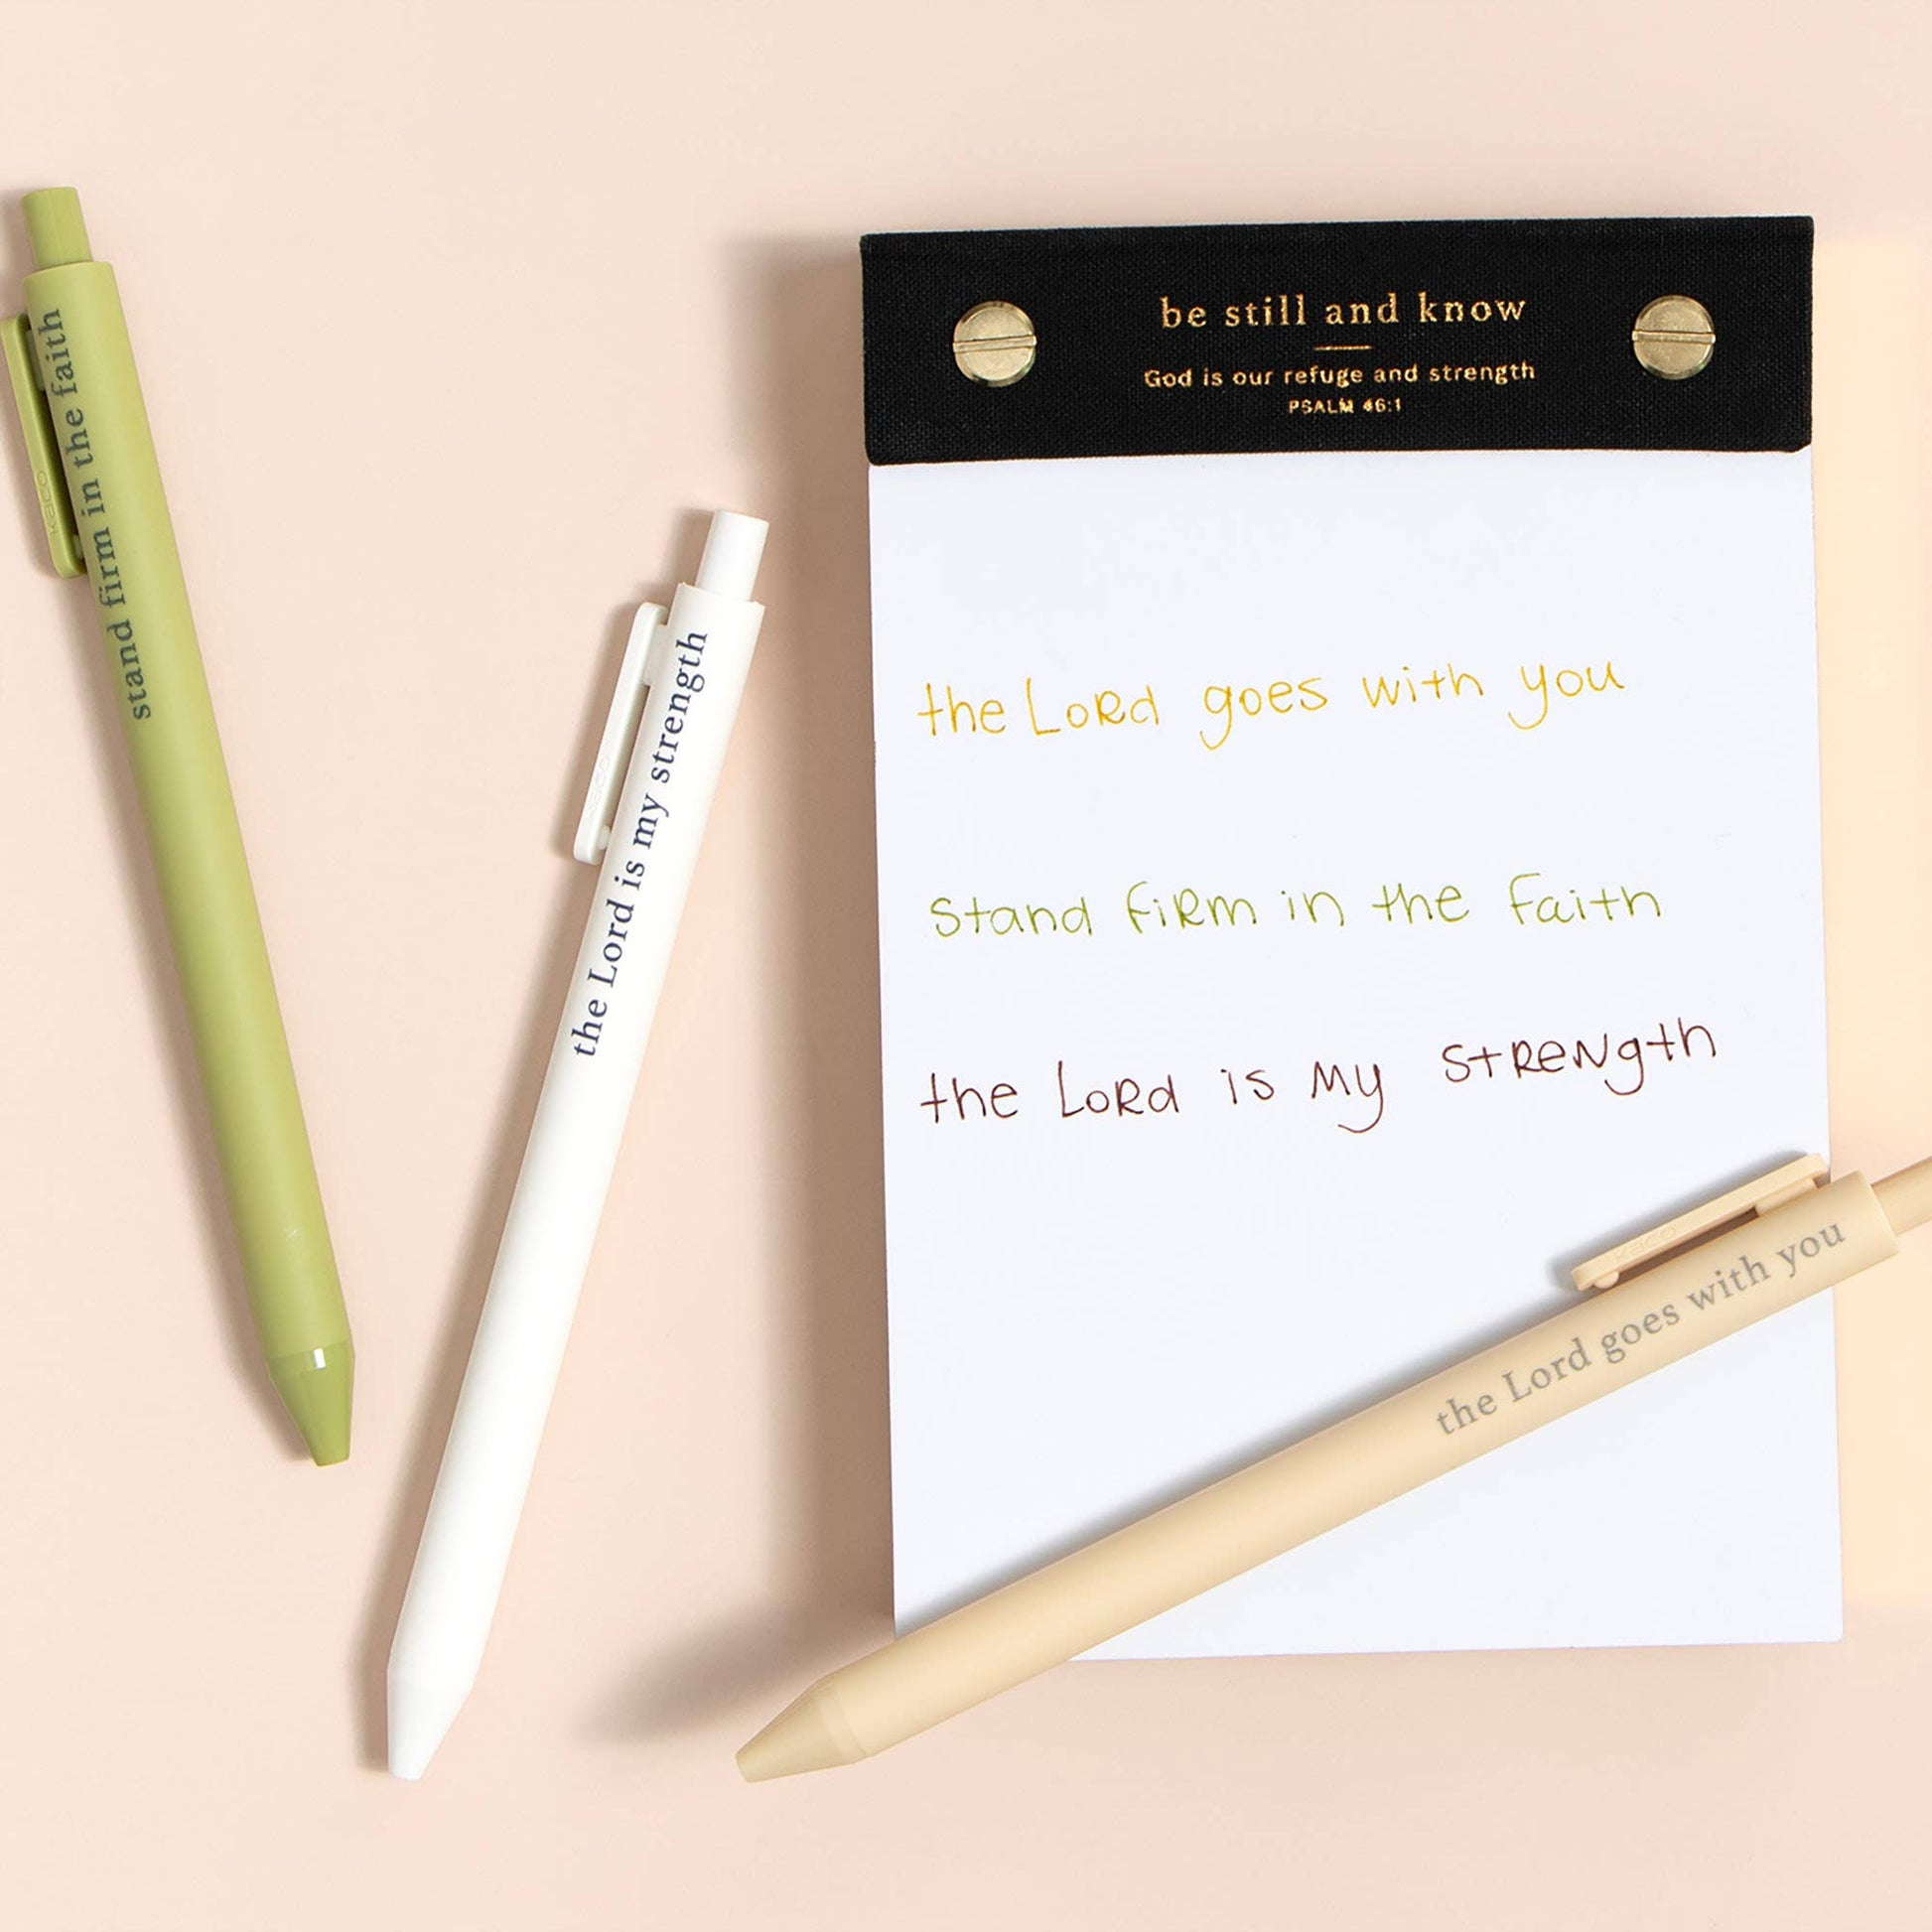 stand firm in the faith
kaco
the Lord is my strength
be still and know
God is our refuge and strength
PSALM 46:1
the Lord goes with you
Stand firm in the faith
the Lord is my strength
kaco
the Lord goes with you